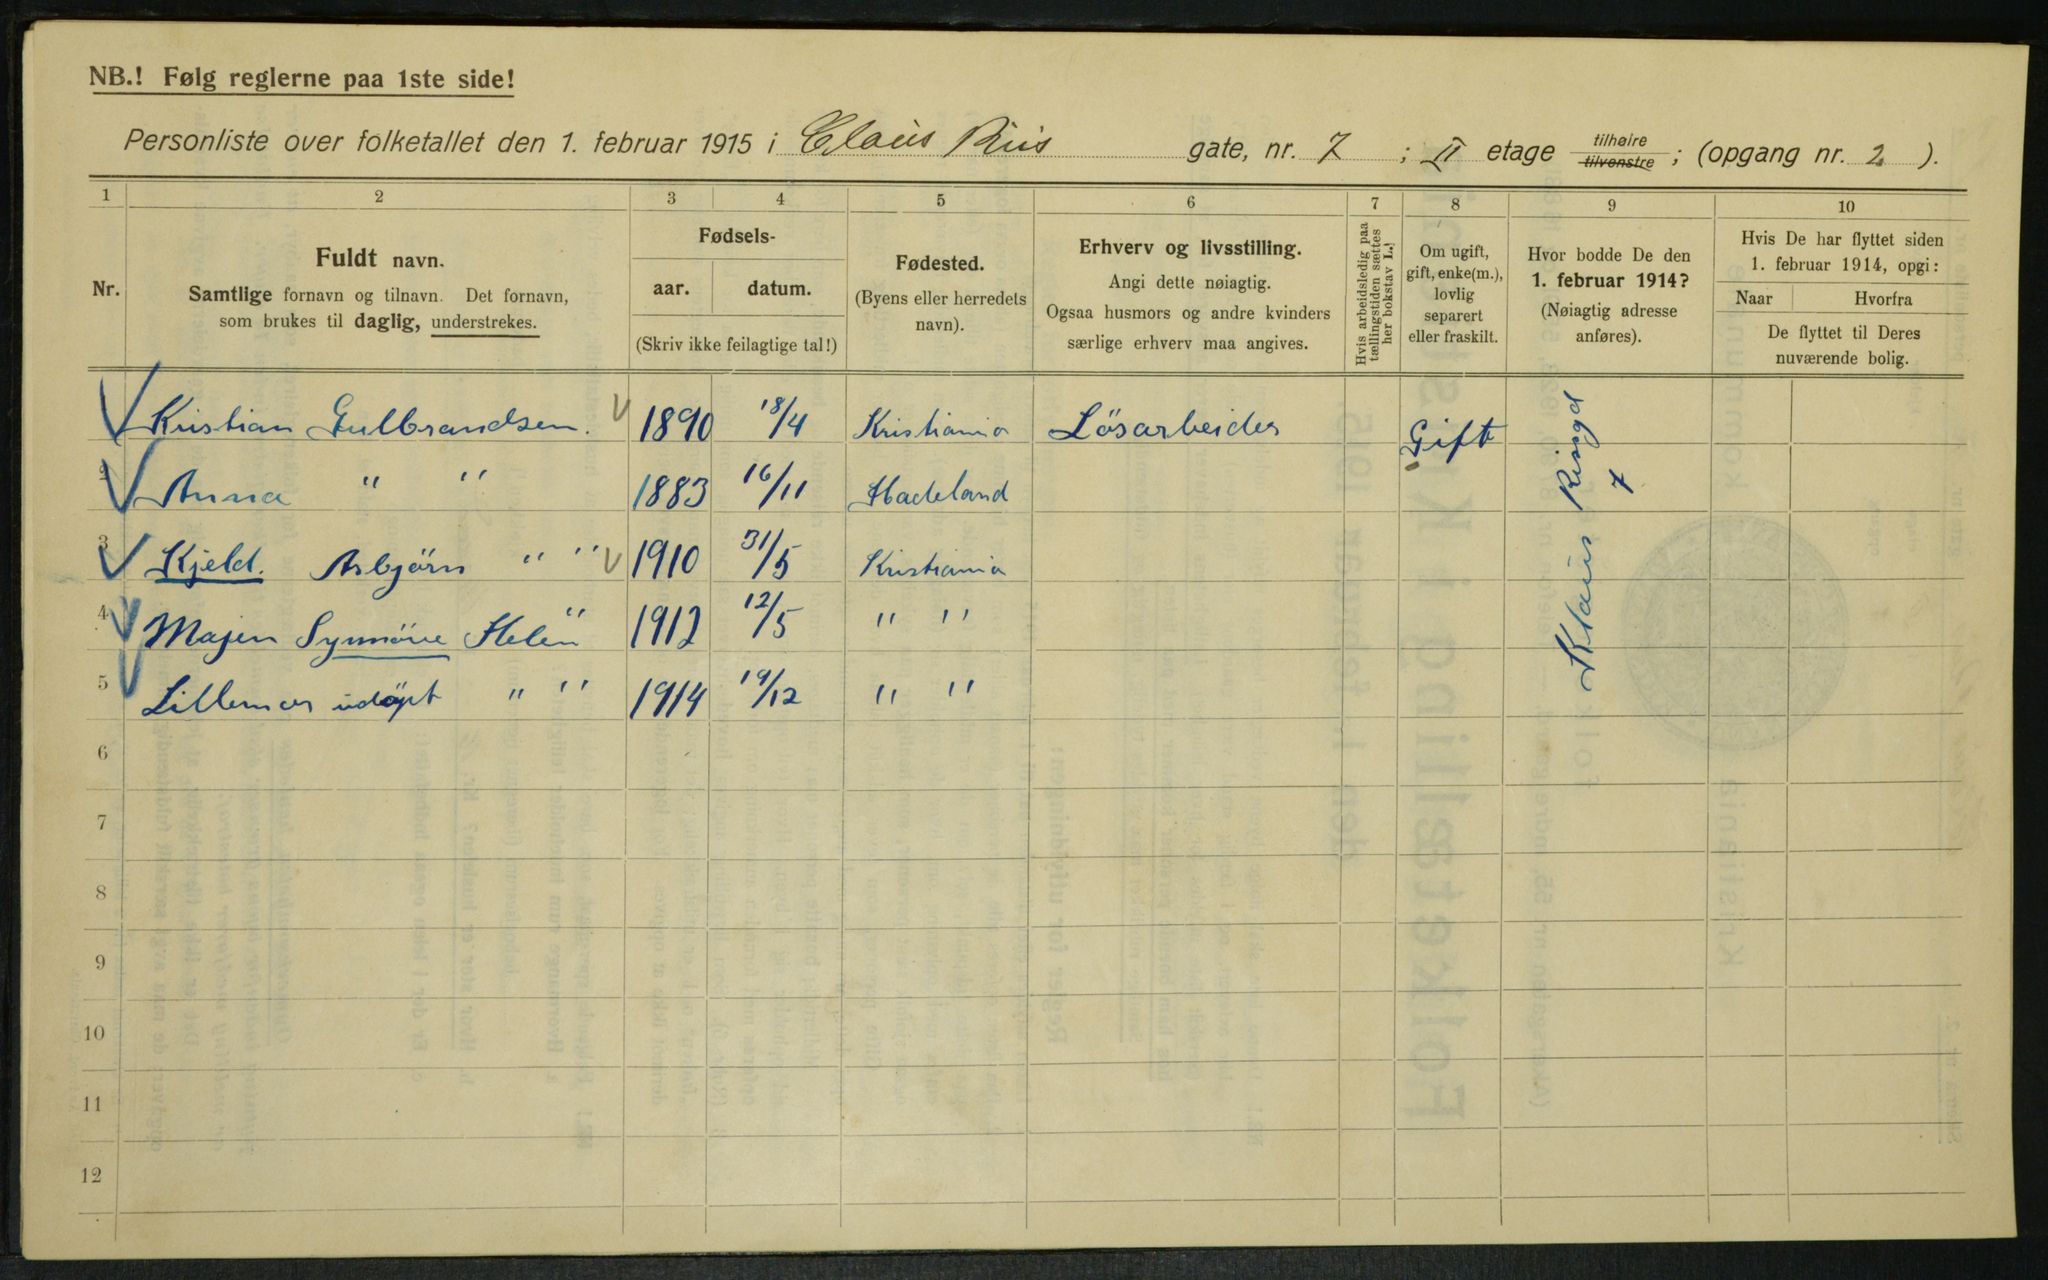 NB.! Følg reglerne paa 1ste side!
Personliste over folketallet den 1. februar 1915 i Claus Riis gate, nr. 7 ; II etage tilhøire tilvenstre ; (opgang nr. 2 ).
1 2 3 4 5 6 7 8 9 10
Nr.
Fuldt navn.
Samtlige fornavn og tilnavn. Det fornavn,
som brukes til daglig, understrekes.
Fødsels-
aar. datum.
(Skriv ikke feilagtige tal!)
Fødested.
(Byens eller herredets
navn).
Erhverv og livsstilling.
Angi dette nøiagtig.
Ogsaa husmors og andre kvinders
særlige erhverv maa angives.
Hvis arbeidsledig paa
tællingstiden sættes
her bokstav L.!
Om ugift,
gift, enke(m.),
lovlig
separert
eller fraskilt.
Hvor bodde De den
1. februar 1914?
(Nøiagtig adresse
anføres).
Hvis De har flyttet siden
1. februar 1914, opgi:
Naar Hvorfra
De flyttet til Deres
nuværende bolig.
Kristian Gulbrandsen. 1890 18/4 Kristiania Løsarbeider Gift
2 Anna " " 1883 16/11 Hadeland
3 Kjeld. Asbjörn " " 1910 31/5 Kristiania
4 Majen Synnöve Helen " 1912 12/5 " "
5 Lillemor udöpt " " 1914 19/12 " "
Klaus Riisgd
7
6
7
8
9
10
11
12